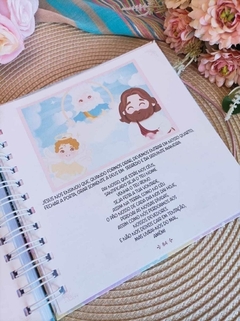 JESUS NOS ENSINOU QUE, QUANDO FORMOS ORAR, DEVEMOS ENTRAR EM NOSSO QUARTO,
FECHAR A PORTA, ORAR SOMENTE A DEUS EM SEGREDO E DA SEGUINTE MANEIRA:
PAI NOSSO, QUE ESTÁS NOS CÉUS,
SANTIFICADO SEJA O TEU NOME
VENHA O TEU REINO,
SEJA FEITA A TUA VONTADE,
ASSIM NA TERRA COMO NO CÉU.
O PÃO NOSSO DE CADA DIA DAI-NOS HOJE,
PERDOA AS NOSSAS DÍVIDAS,
ASSIM COMO NÓS PERDOAMOS
NOSSOS DEVEDORES
E NÃO NOS DEIXES CAIR EM TENTAÇÃO,
MAS LIVRA-NOS DO MAL.
AMÉM!